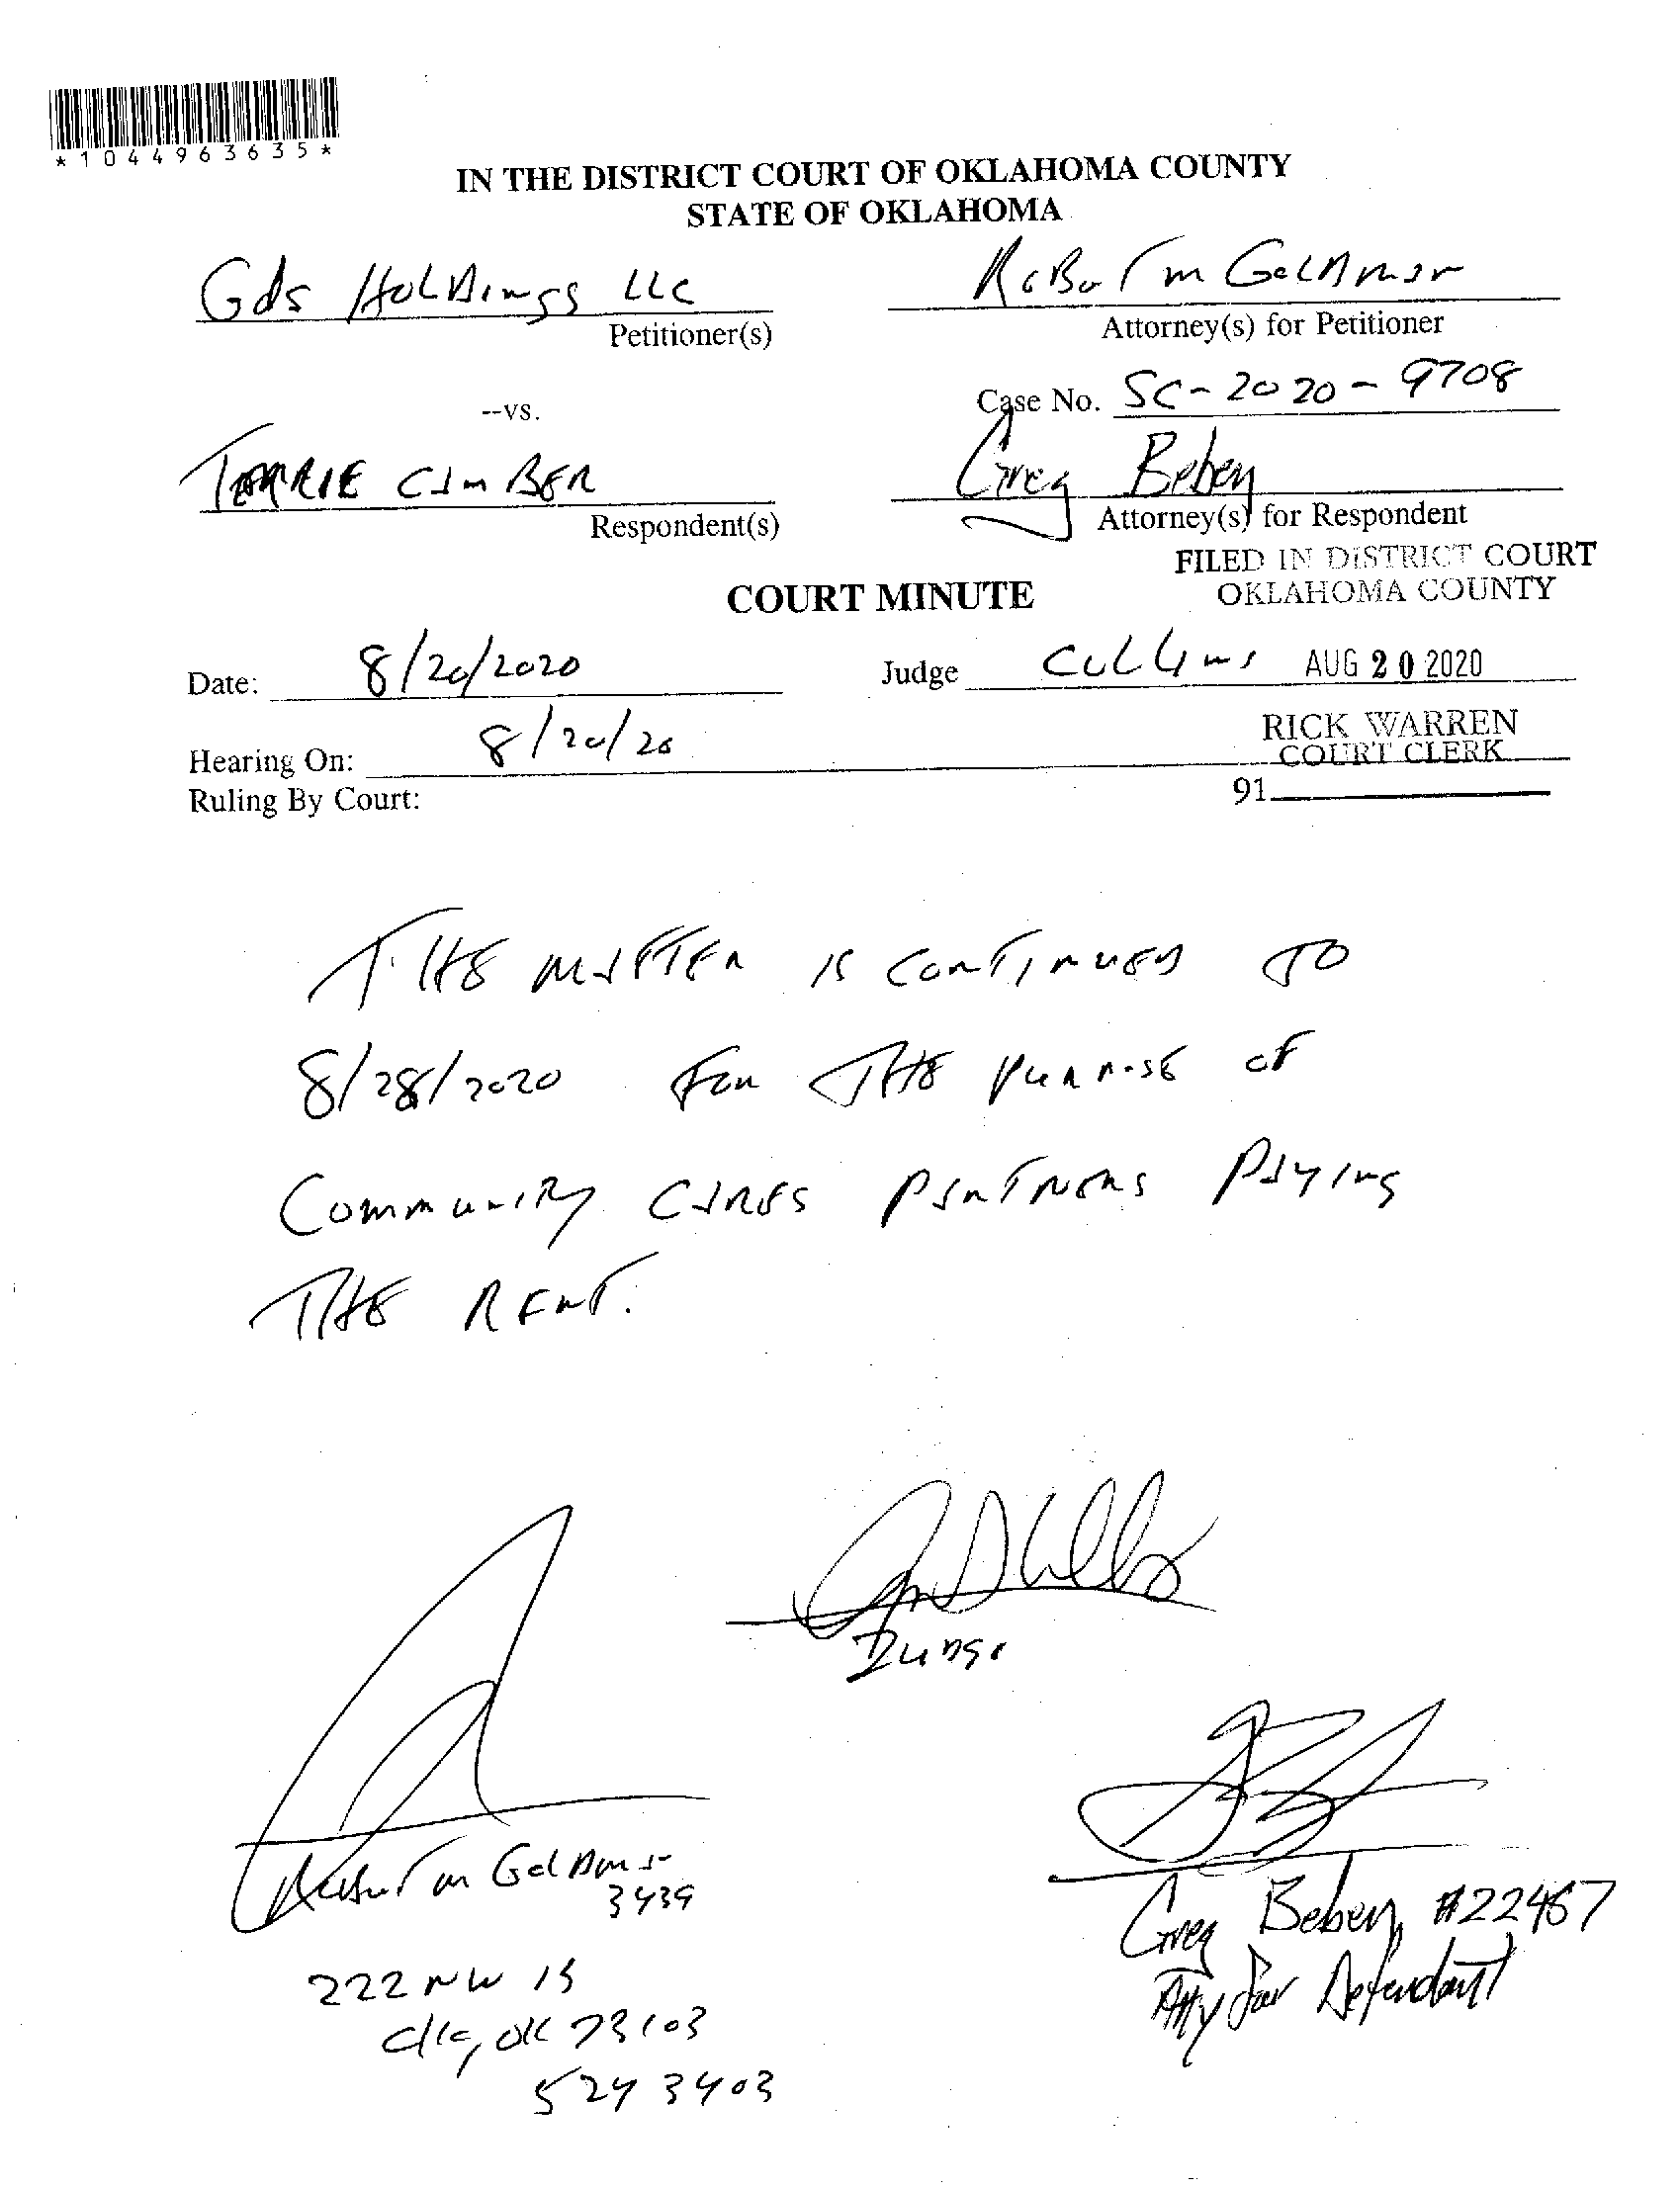 *1044963635*
IN THE DISTRICT COURT OF OKLAHOMA COUNTY
STATE OF OKLAHOMA
Gds Holdings LLC
Petitioner(s)
Robert M Goldman
Attorney(s) for Petitioner
--vs.
Case No. SC-2020-9708
TERRIE CIMBER
Respondent(s)
Greg Beben
Attorney(s) for Respondent
FILED IN DISTRICT COURT
OKLAHOMA COUNTY
COURT MINUTE
Date: 8/20/2020
Judge Collins AUG 20 2020
Hearing On: 8/20/20
RICK WARREN
COURT CLERK
Ruling By Court:
91
THE MATTER IS CONTINUED TO
8/28/2020 FOR THE PURPOSE OF
COMMUNITY CARES PARTNERS PAYING
THE RENT.
Judge
Robert M Goldman
3439
222 NW 13
OKC, OK 73103
524 3403
Greg Beben #22467
Atty for Defendant